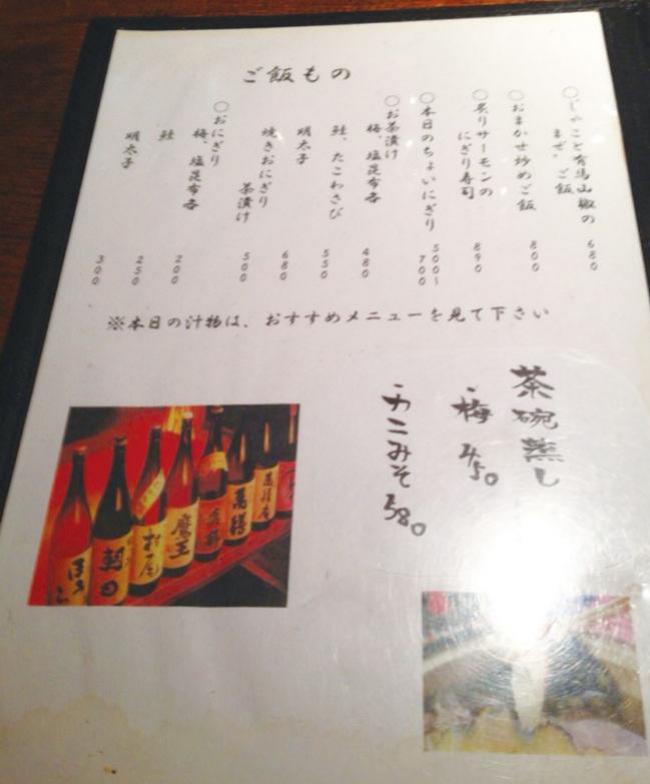 ご飯もの
○じゃこと有馬山椒の
まぜご飯
680
○おまかせ炒めご飯
800
○炙りサーモンの
にぎり寿司
890
○本日のちょいにぎり
500〜
700
○お茶漬け
梅、塩昆布各
480
鮭、たこわさび
550
明太子
680
焼きおにぎり
茶漬け
500
○おにぎり
梅、塩昆布各
200
鮭
250
明太子
300
※本日の汁物は、おすすめメニューを見て下さい
茶碗蒸し
・梅 450
・カニみそ 580
朝日
村尾
魔王
萬膳
萬膳庵